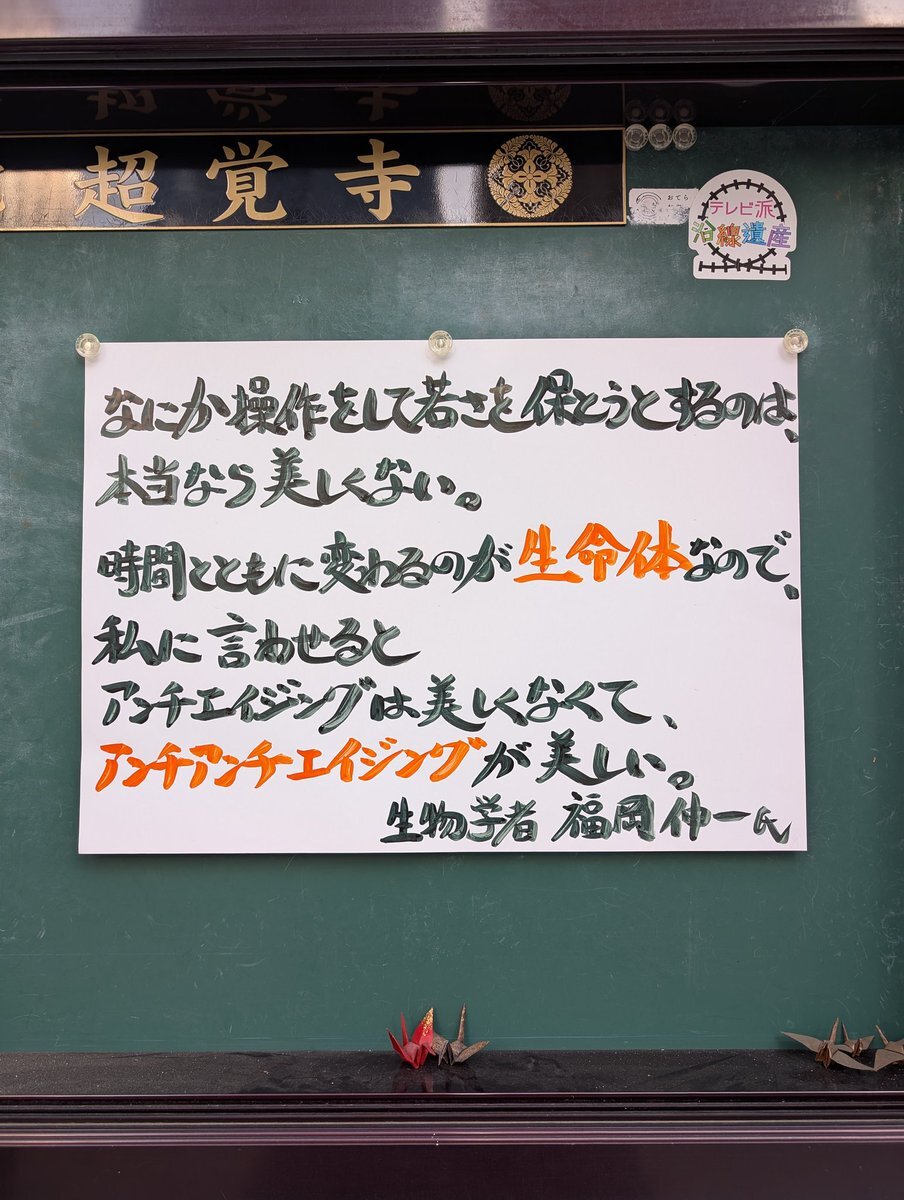 超覚寺
おてら
テレビ派
沿線遺産
なにか操作をして若さを保とうとするのは、
本当なら美しくない。
時間とともに変わるのが生命体なので、
私に言わせると
アンチエイジングは美しくなくて、
アンチアンチエイジングが美しい。
生物学者 福岡伸一氏